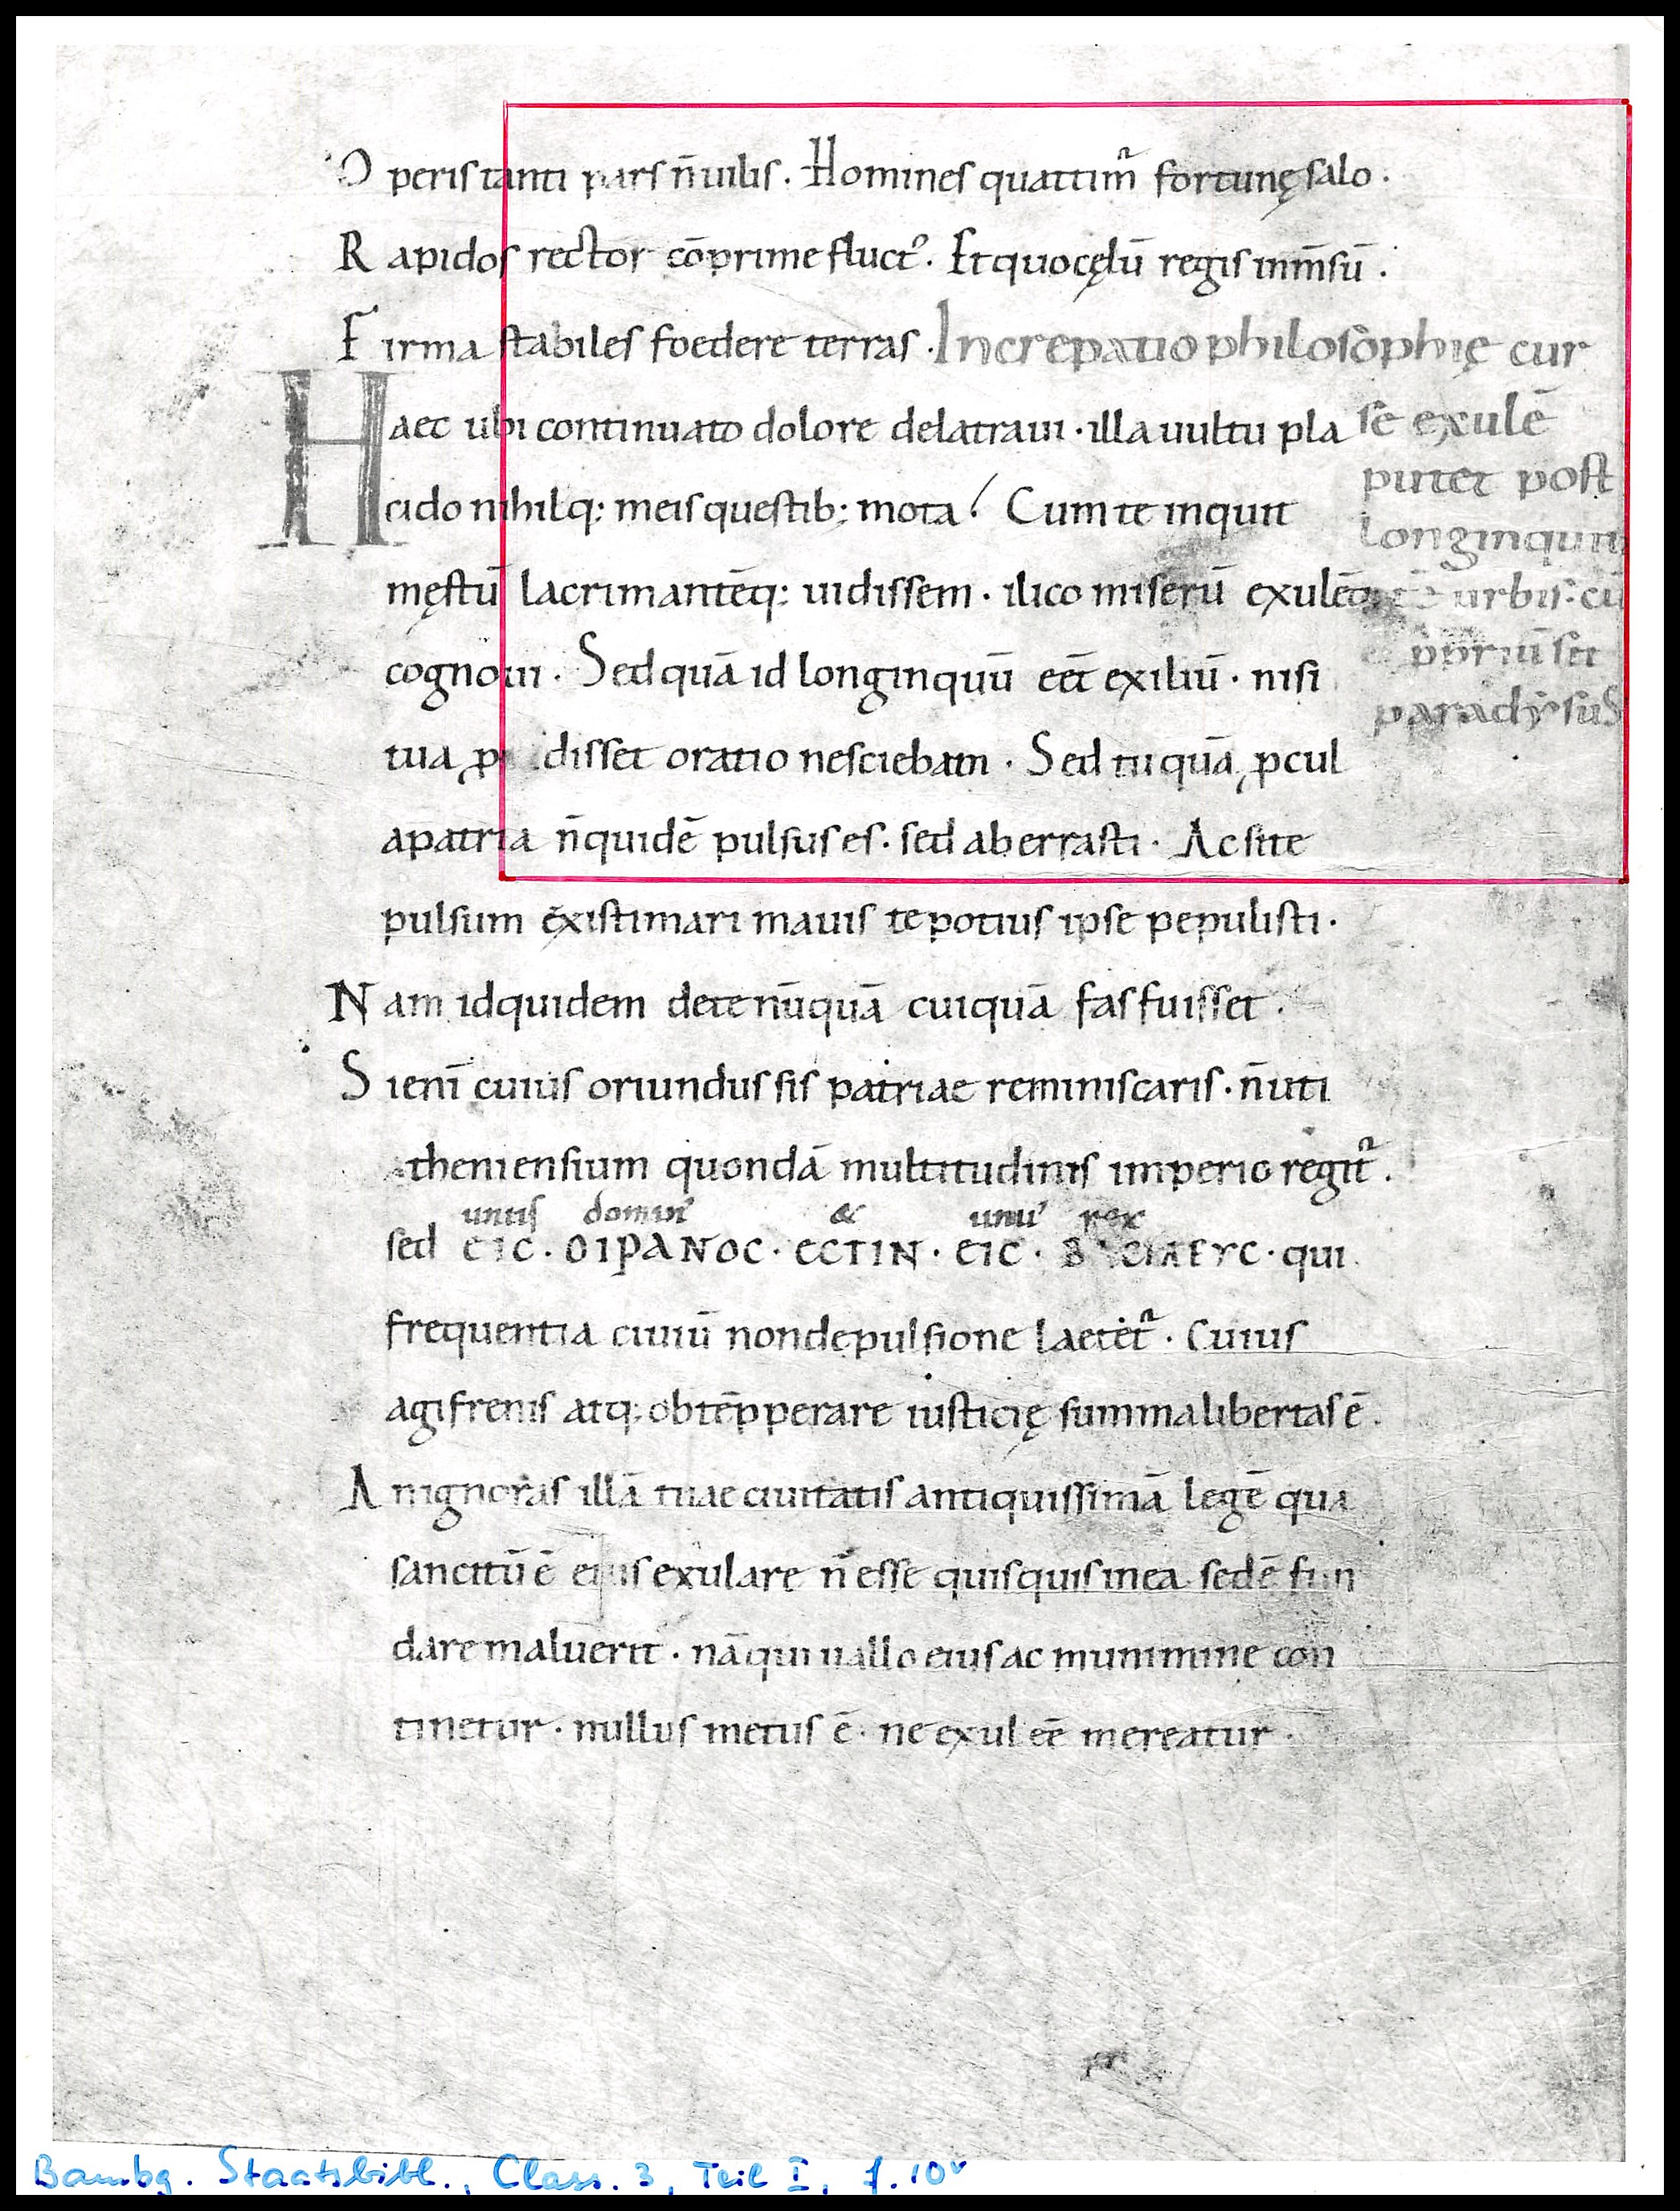 Operis tanti pars n̄ uilis. Homines quatim̃ fortunę salo.
Rapidos rector cōprime fluct᾽. Et quo cęlū regis inm̄sū.
Firma stabiles foedere terras. Increpatio philosophię cur
Haec ubi continuato dolore delatraui. illa uultu pla
se exulē
putet post
cido nihilq; meis questib; mota. Cum te inquit
longinquita
męstū lacrimantēq; uidissem. ilico miserū exulēq;
urbis. cū
cognoui. Sed quā id longinquū eēt exiliū. nisi
ppriū sit
paradysus
tua disset oratio nesciebam. Sed tu quā pcul
a patria n̄ quidē pulsus es. sed aberrasti. Ac si te
pulsum existimari mauis te potius ipse pepulisti.
Nam id quidem de te nūquā cuiquā fas fuisset.
Si enī cuius oriundus sis patriae reminiscaris. n̄ uti
atheniensium quondā multitudinis imperio regit᾽.
unus domin᾽ & unu᾽ rex
sed ΕΙC. ΟΙΡΑΝΟC. ΕCΤΙΝ. ΕΙC. qui
frequentia ciuiū non depulsione laetet᾽. Cuius
agi frenis atq; obtēpperare iusticię summa libertas ē.
An ignoras illā tuae ciuitatis antiquissimā legē qua
sancitū ē ei ius exulare n̄ esse quisquis in ea sedē fun
dare maluerit. nā qui uallo eius ac munimine con
tinetur. nullus metus ē. ne exul eē mereatur.
Bambg. Staatsbibl., Class. 3, Teil I, f. 10v